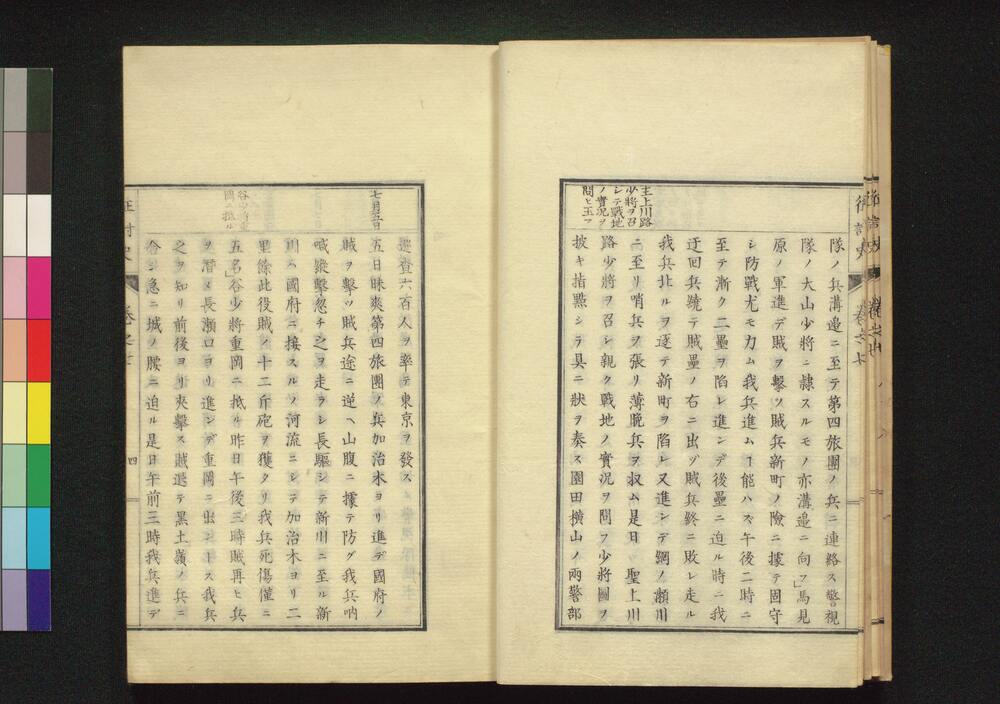 征討史
卷之七
隊ノ兵溝邉ニ至テ第四旅團ノ兵ニ連絡ス警視
隊ノ大山少將ニ隷スルモノ亦溝邉ニ向フ」馬見
原ノ軍進デ賊ヲ擊ツ賊兵新町ノ險ニ據テ固守
シ防戰尤モ力ム我兵進ムヿ能ハズ午後二時ニ
至テ漸ク二壘ヲ陷レ進ンデ後壘ニ迫ル時ニ我
迂回兵繞テ賊壘ノ右ニ出ヅ賊兵終ニ敗レ走ル
我兵北ルヲ逐テ新町ヲ陷レ又進ンデ網ノ瀬川
ニ至リ哨兵ヲ張リ薄晩兵ヲ収ム是日 聖上川
主上川路
少將ヲ召
シテ戰地
ノ實況ヲ
問ヒ玉フ
路少將ヲ召シ親ク戰地ノ實況ヲ問フ少將圖ヲ
披キ指㸃シテ具ニ狀ヲ奏ス園田橫山ノ兩警部
巡査六百人ヲ率テ東京ヲ發ス
七月五日
五日昧爽第四旅團ノ兵加治木ヨリ進デ國府ノ
賊ヲ擊ツ賊兵途ニ逆ヘ山腹ニ據テ防グ我兵吶
喊縱擊忽チ之ヲ走ラシ長驅シテ新川ニ至ル新
川ハ國府ニ接スルノ河流ニシテ加治木ヨリ二
里餘此役賊ノ十二斤砲ヲ獲タリ我兵死傷僅ニ
谷少將重
岡ニ抵ル
五名」谷少將重岡ニ抵ル昨日午後三時賊再ヒ兵
ヲ潜メ長瀬口ヨリ進ンデ重岡ニ出ントス我兵
之ヲ知リ前後ヨリ夾擊ス賊退テ黑土嶺ノ兵ニ
合シ急ニ城ノ腰ニ迫ル是日午前三時我兵進デ
征討史
卷之七
四